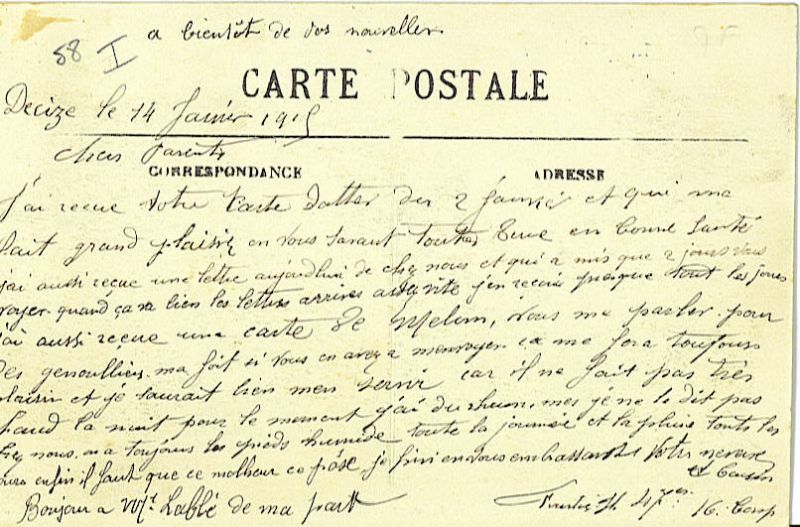 a bientôt de vos nouvelles
58 I
CARTE POSTALE
Decize le 14 Janvier 1915
chers Parents
CORRESPONDANCE ADRESSE
J'ai recue votre Carte datter du 2 Janvier et qui me
fait grand plaisir en vous savant toutes en bonne santé
j'ai aussi recue une lettre aujourd'hui de chez nous et qui a mis que 2 jours vous
voyer quand ça va bien les lettres arrives j'en recois presque tout les jours
j'ai aussi recue une carte de Melun, vous me parler pour
des genoulliers ma foit si vous en avez a menvoyer ca me fera toujours
plaisir et je saurait bien men servir car il ne fait pas très
chaud la nuit pour le moment j'ai du rhum, mes je ne le dit pas
chez nous. on a toujours les pieds humide toute la journée et la pluie touts les
jours enfin il faut que ce malheur ce pase, je fini en vous embrassant Votre neveux
et Cousin
Bonjour a Mr Labbé de ma part
16. Corp